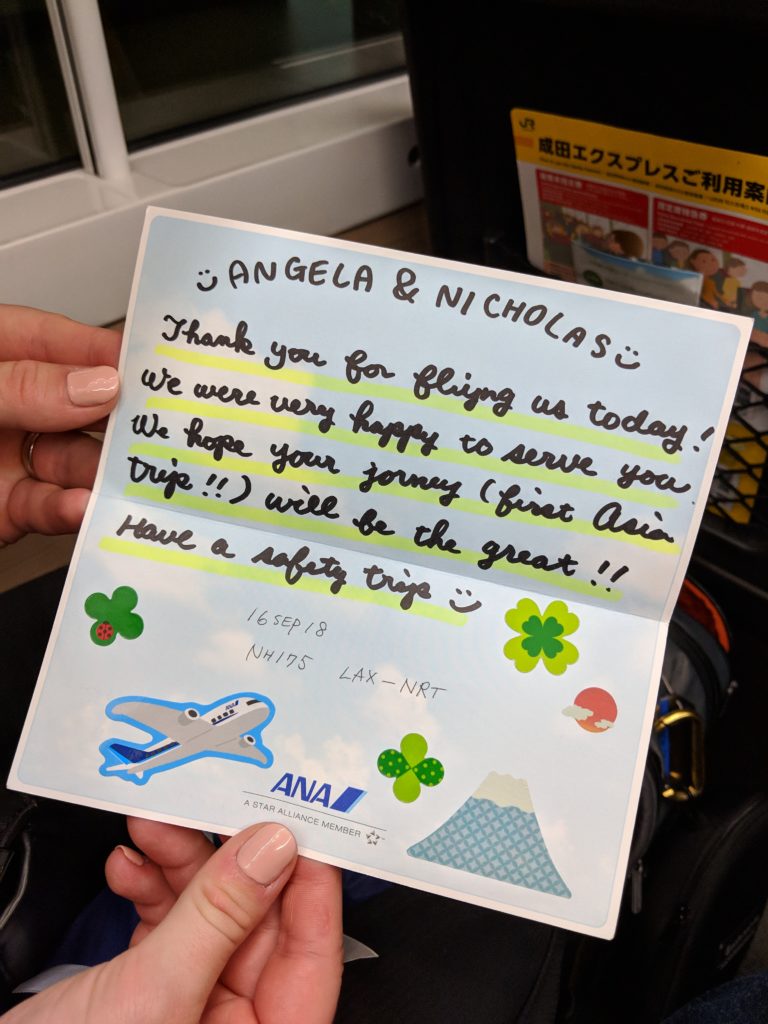 JR
成田エクスプレスご利用案内
ANGELA & NICHOLAS
Thank you for fliyng us today!
We were very happy to serve you.
We hope your jorney (first Asia
trip!!) will be the great!!
Have a safety trip
16 SEP 18
NH175 LAX-NRT
ANA
ANA
A STAR ALLIANCE MEMBER